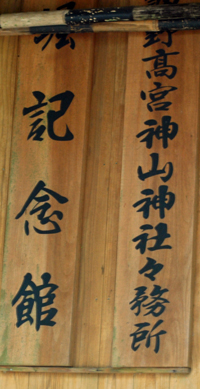 野高宮神山神社々務所
記念館